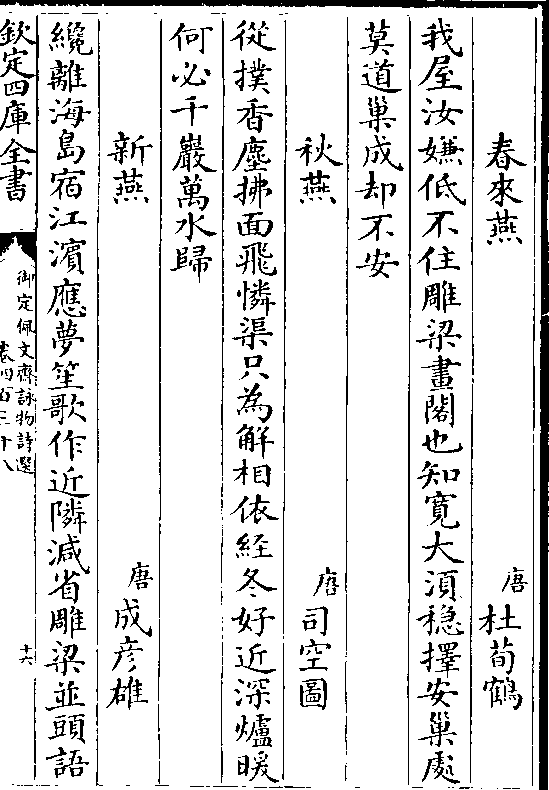 春來燕 唐杜荀鶴
我屋汝嫌低不住雕梁畫閣也知寛大湏穏擇安巢處
莫道巢成却不安
秋燕 唐司空圖
從撲香塵拂面飛憐渠只為解相依經冬好近深爐暖
何必千巖萬水歸
新燕 唐成彥雄
纔離海島宿江濱應夢笙歌作近隣減省雕梁並頭語
欽定四庫全書
御定佩文齋詠物詩選
卷四百三十八
十六